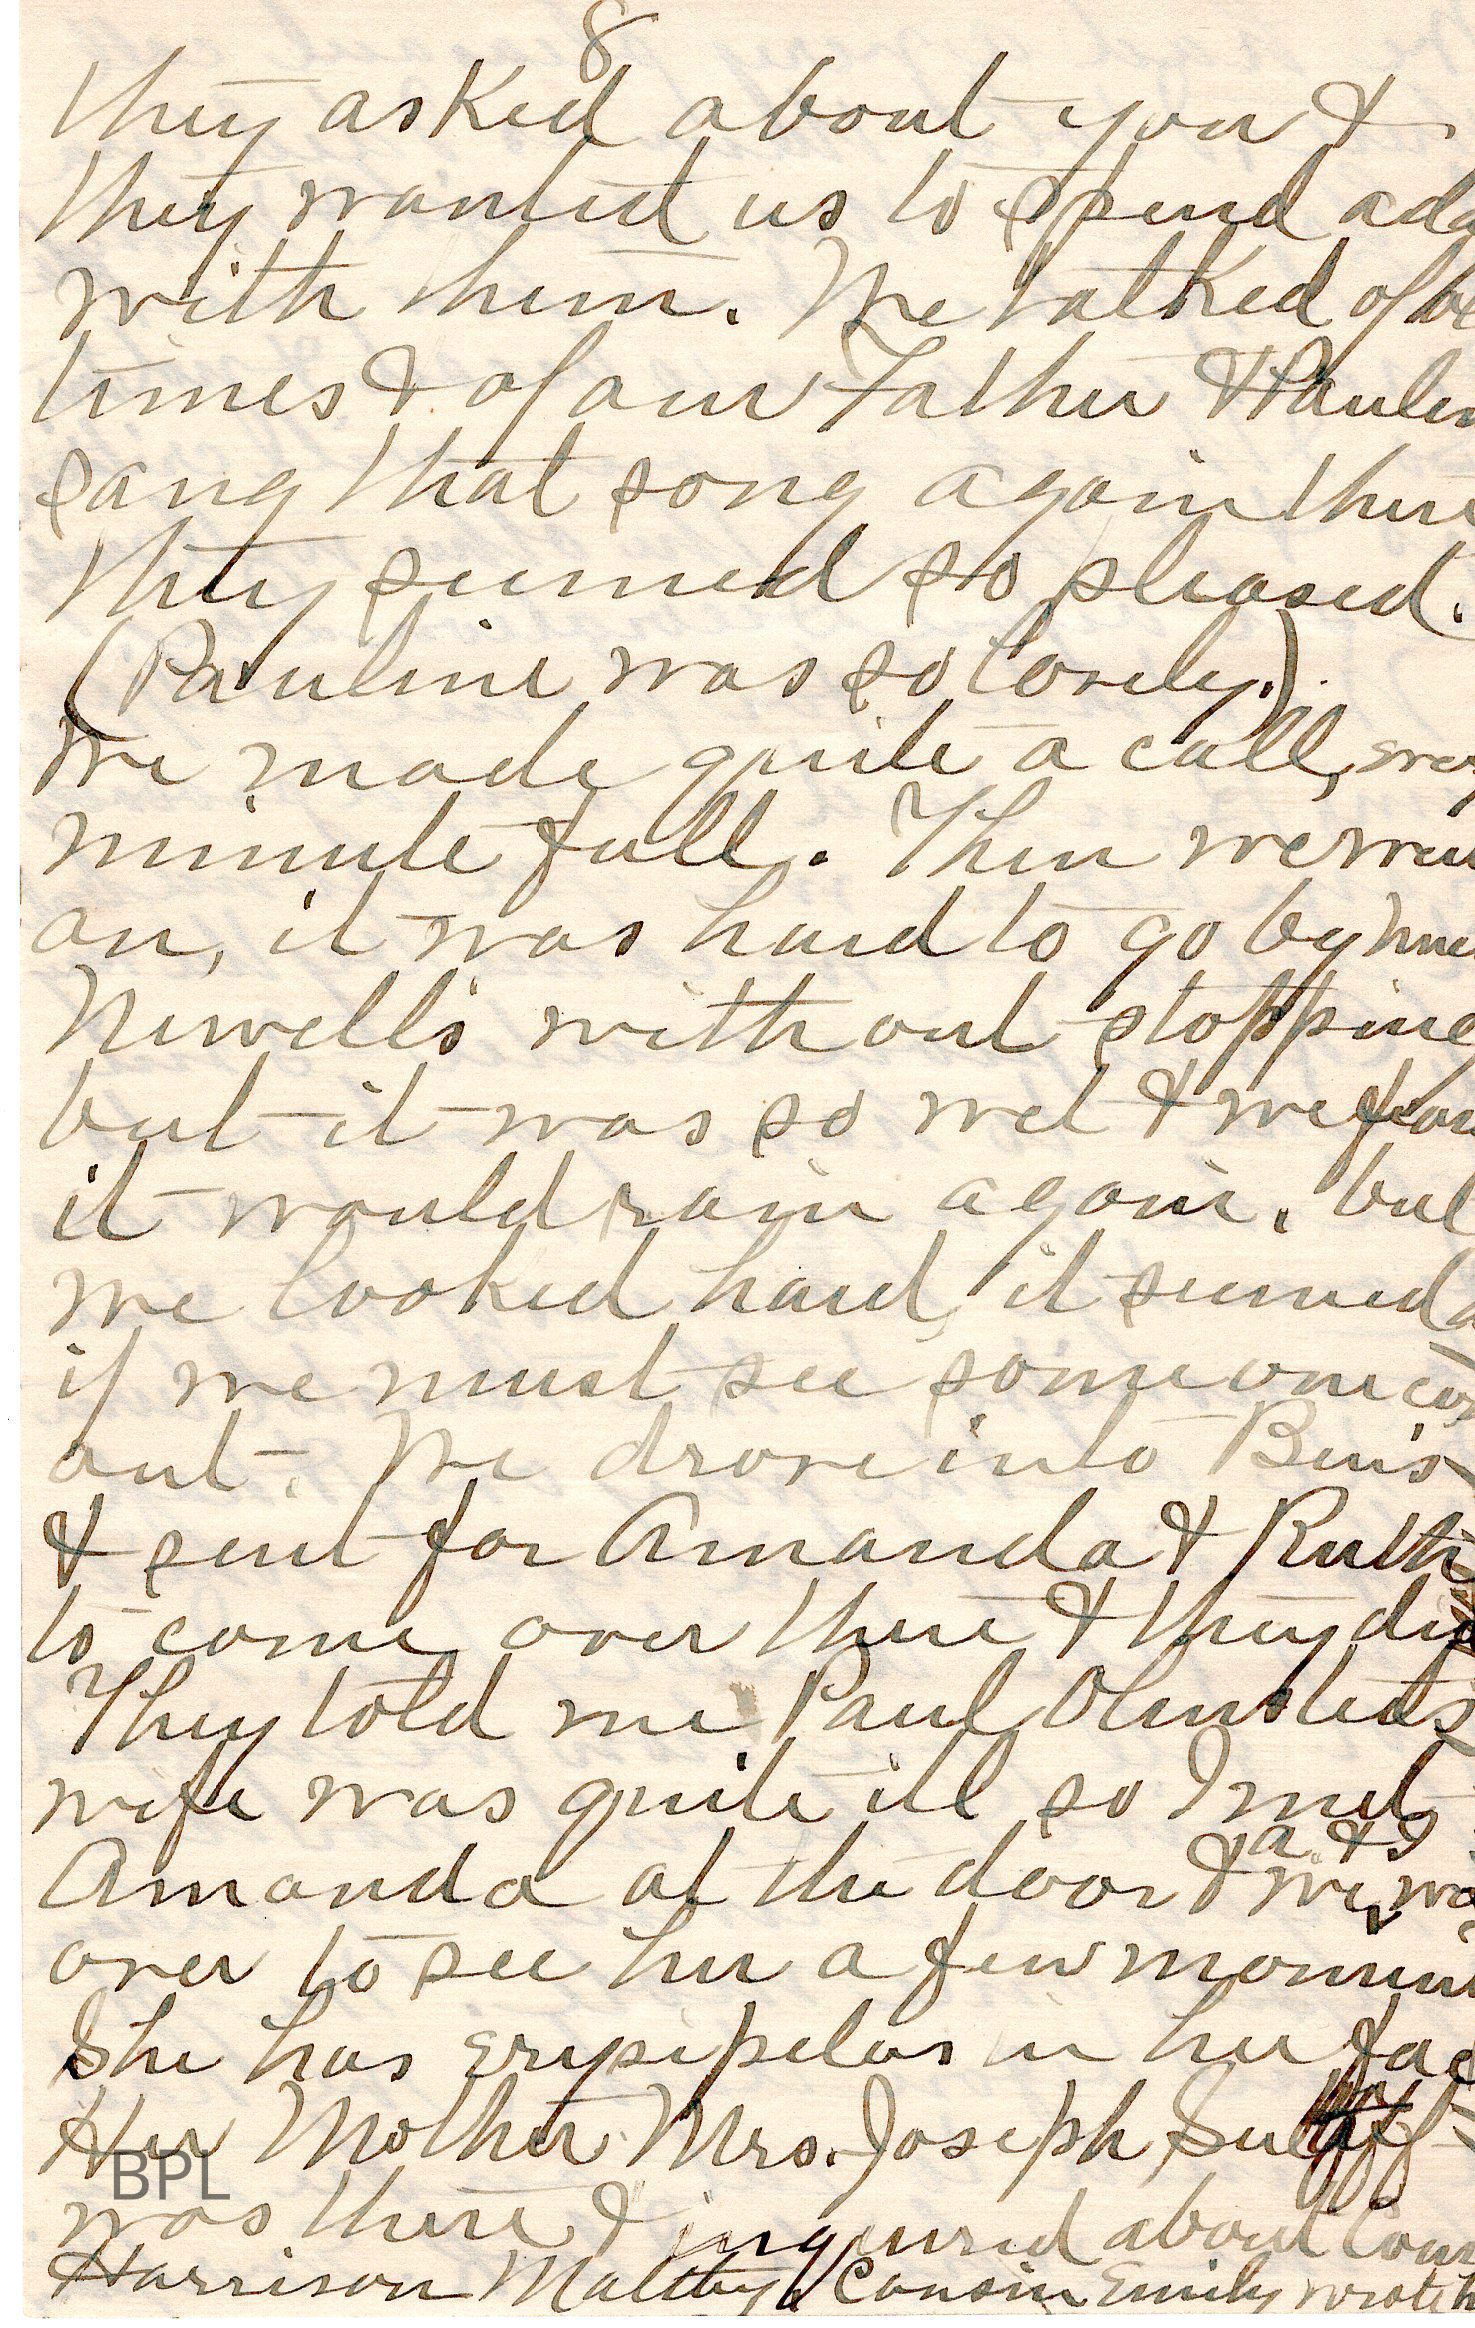 8
they asked about you &
they wanted us to spend a da
with them. We talked of
times & of our Father & Paulin
sang that song again there
They seemed so pleased.
(Pauline was so lovely.)
We made quite a call, every
minute full. Then we wen
on, it was hard to go by
Newell's without stopping
but it was so wet & we fear
it would rain again. but
we looked hard, it seemed a
if we must see some one com
out. We drove into Ben's
& sent for Amanda & Ruth
to come over there & they did
They told me Paul Olmsted's
wife was quite ill so I met
a & I
Amanda at the door & we
over to see her a few momen
She has erysipelas in her fac
Her Mother Mrs. Joseph Sutliff
was there & inquired about Cous
Harrison Maltby. Cousin Emily wrote h
BPL